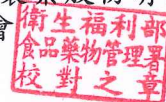 衛生福利部
食品藥物管理署
校對之章
會